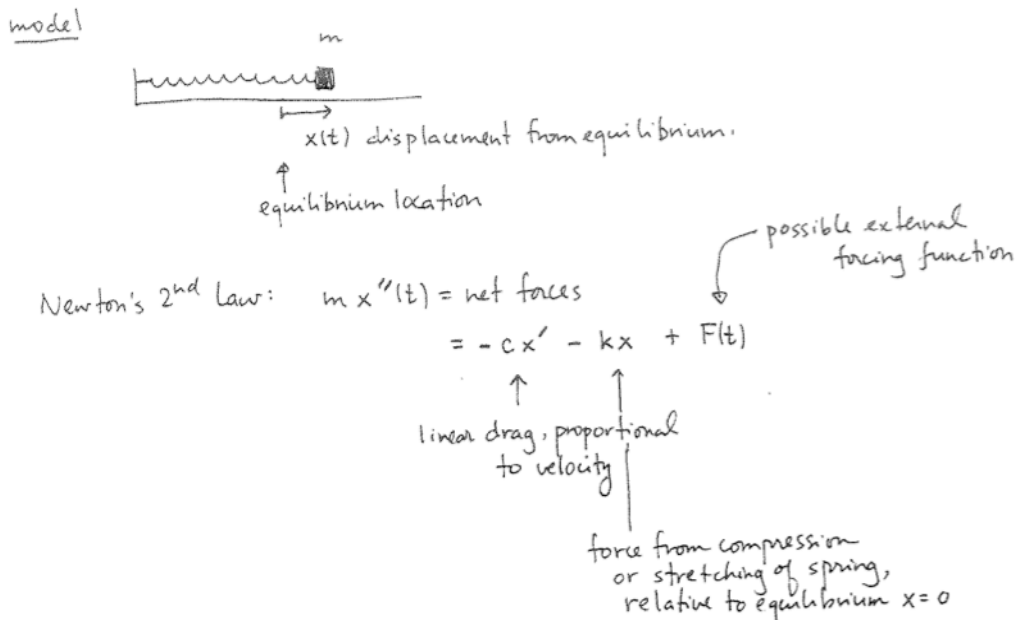 model
m
x(t) displacement from equilibrium.
equilibrium location
possible external
forcing function
Newton's 2nd Law: m x"(t) = net forces
= - cx' - kx + F(t)
linear drag, proportional
to velocity
force from compression
or stretching of spring,
relative to equilibrium x=0